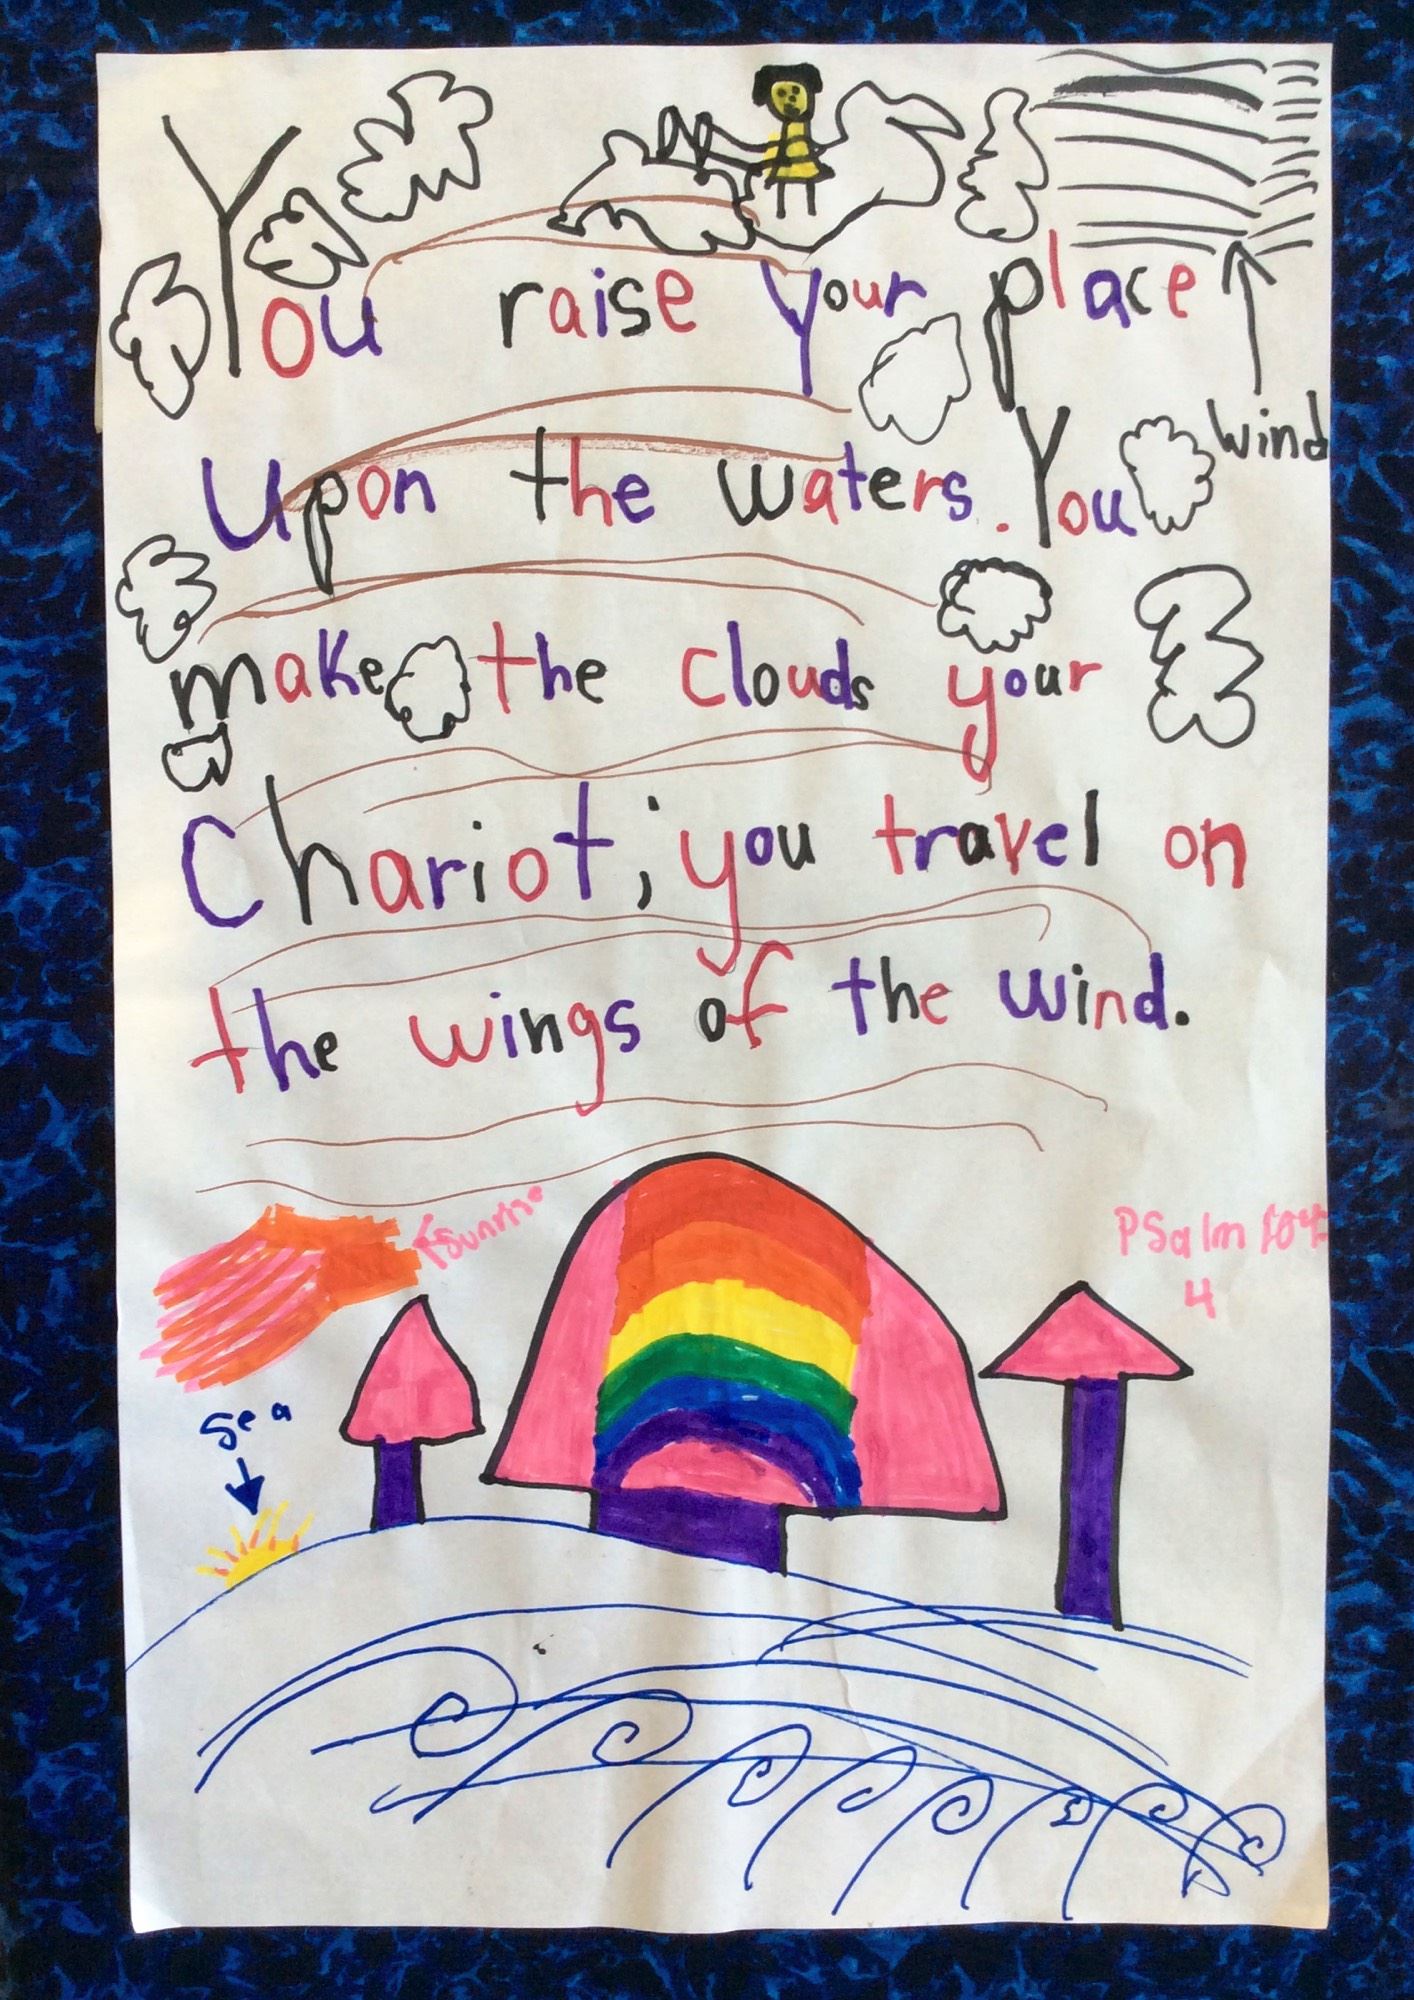 You raise your place
wind
Upon the waters. You
make the clouds your
Chariot; you travel on
the wings of the wind.
Sunrise
Psalm 104
4
Sea